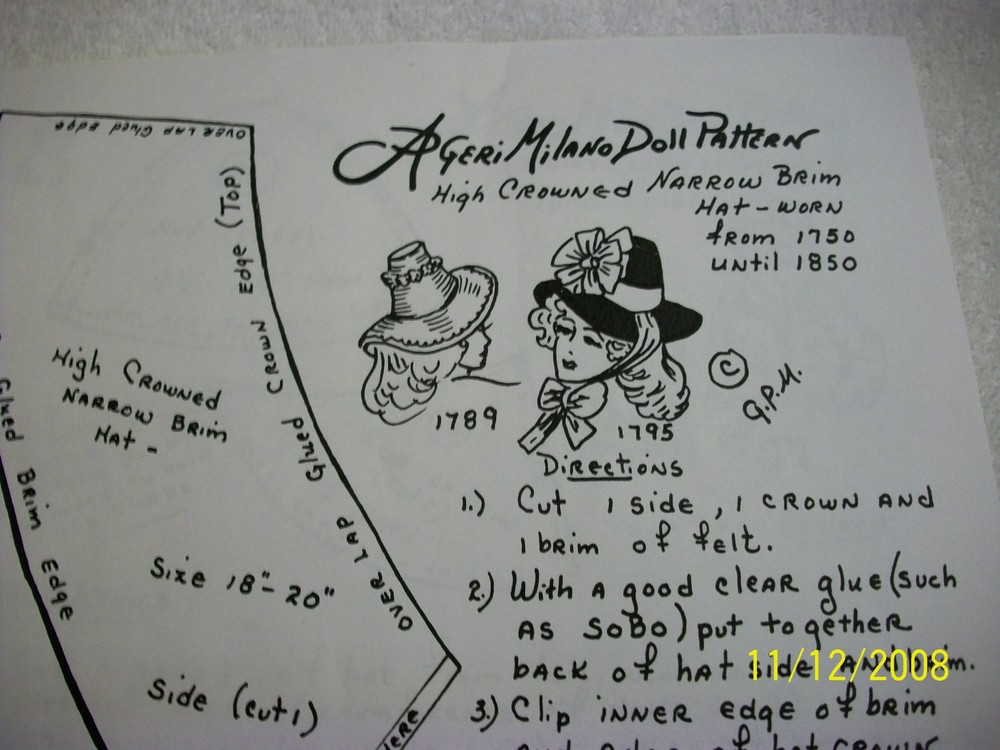 A Geri Milano Doll Pattern
High Crowned Narrow Brim
Hat - worn
from 1750
until 1850
1789
1795
© G.P.M.
Directions
1.) Cut 1 side, 1 crown and
1 brim of felt.
2.) With a good clear glue (such
as Sobo) put together
back of hat side and brim.
3.) Clip inner edge of brim
and edge of hat crown
Over Lap Glued Edge
Over Lap Glued Crown Edge (Top)
High Crowned
Narrow Brim
Hat -
Glued Brim Edge
Size 18"- 20"
Side (cut 1)
11/12/2008